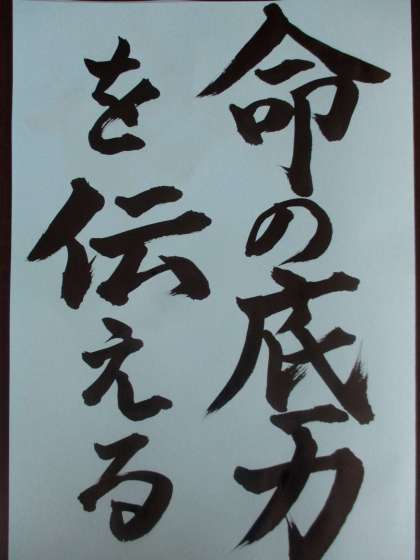 命の底力
を伝える